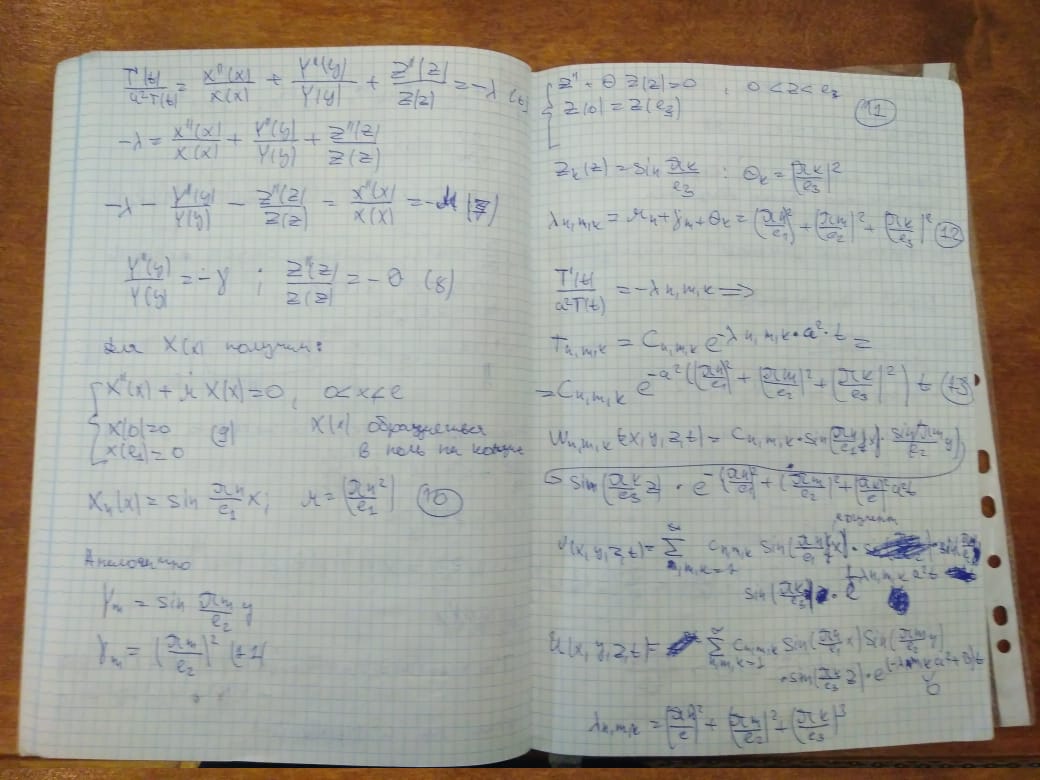 T'(t)/a²T(t) = X''(x)/X(x) + Y''(y)/Y(y) + Z''(z)/Z(z) = -λ
-λ = X''(x)/X(x) + Y''(y)/Y(y) + Z''(z)/Z(z)
-λ - Y''(y)/Y(y) - Z''(z)/Z(z) = X''(x)/X(x) = -μ (7)
Y''(y)/Y(y) = -γ ; Z''(z)/Z(z) = -θ (8)
Для X(x) получим:
X''(x) + μ X(x) = 0, 0<x<e
X(0)=0 (9) X(x) обращается
X(e₁)=0 в ноль на концах
Xₙ(x) = sin πn/e₁ x; μ = (πn²/e₁) (10)
Аналогично
Yₘ = sin πm/e₂ y
γₘ = (πm/e₂)²
Z'' + θ Z(z)=0 ; 0<z<e₃
Z(0) = Z(e₃) (11)
Zₖ(z) = sin πk/e₃ ; θₖ = (πk/e₃)²
λn,m,k = μn + γm + θk = (πn/e₁)² + (πm/e₂)² + (πk/e₃)² (12)
T'(t)/a²T(t) = -λn,m,k ⟹
Tn,m,k = Cn,m,k e^(-λn,m,k·a²·t) =
= Cn,m,k e^(-a²((πn/e₁)² + (πm/e₂)² + (πk/e₃)²) t) (13)
Wn,m,k (x,y,z,t) = Cn,m,k · sin(πn/e₁ x) · sin(πm/e₂ y)
sin(πk/e₃ z) · e^(-(πn/e₁)² + (πm/e₂)² + (πk/e)² a²t)
V(x,y,z,t) = ∑ n,m,k=1 ∞ Cn,m,k sin(πn/e₁ x) · sin
sin(πk/e₃ z) · e^(-λn,m,k a²t)
U(x,y,z,t) = ∑ n,m,k=1 ∞ Cn,m,k sin(πn/e₁ x) sin(πm/e₂ y)
· sin(πk/e₃ z) · e^(-λn,m,k a²+B)t
λn,m,k = (πn/e)² + (πm/e₂)² + (πk/e₃)³